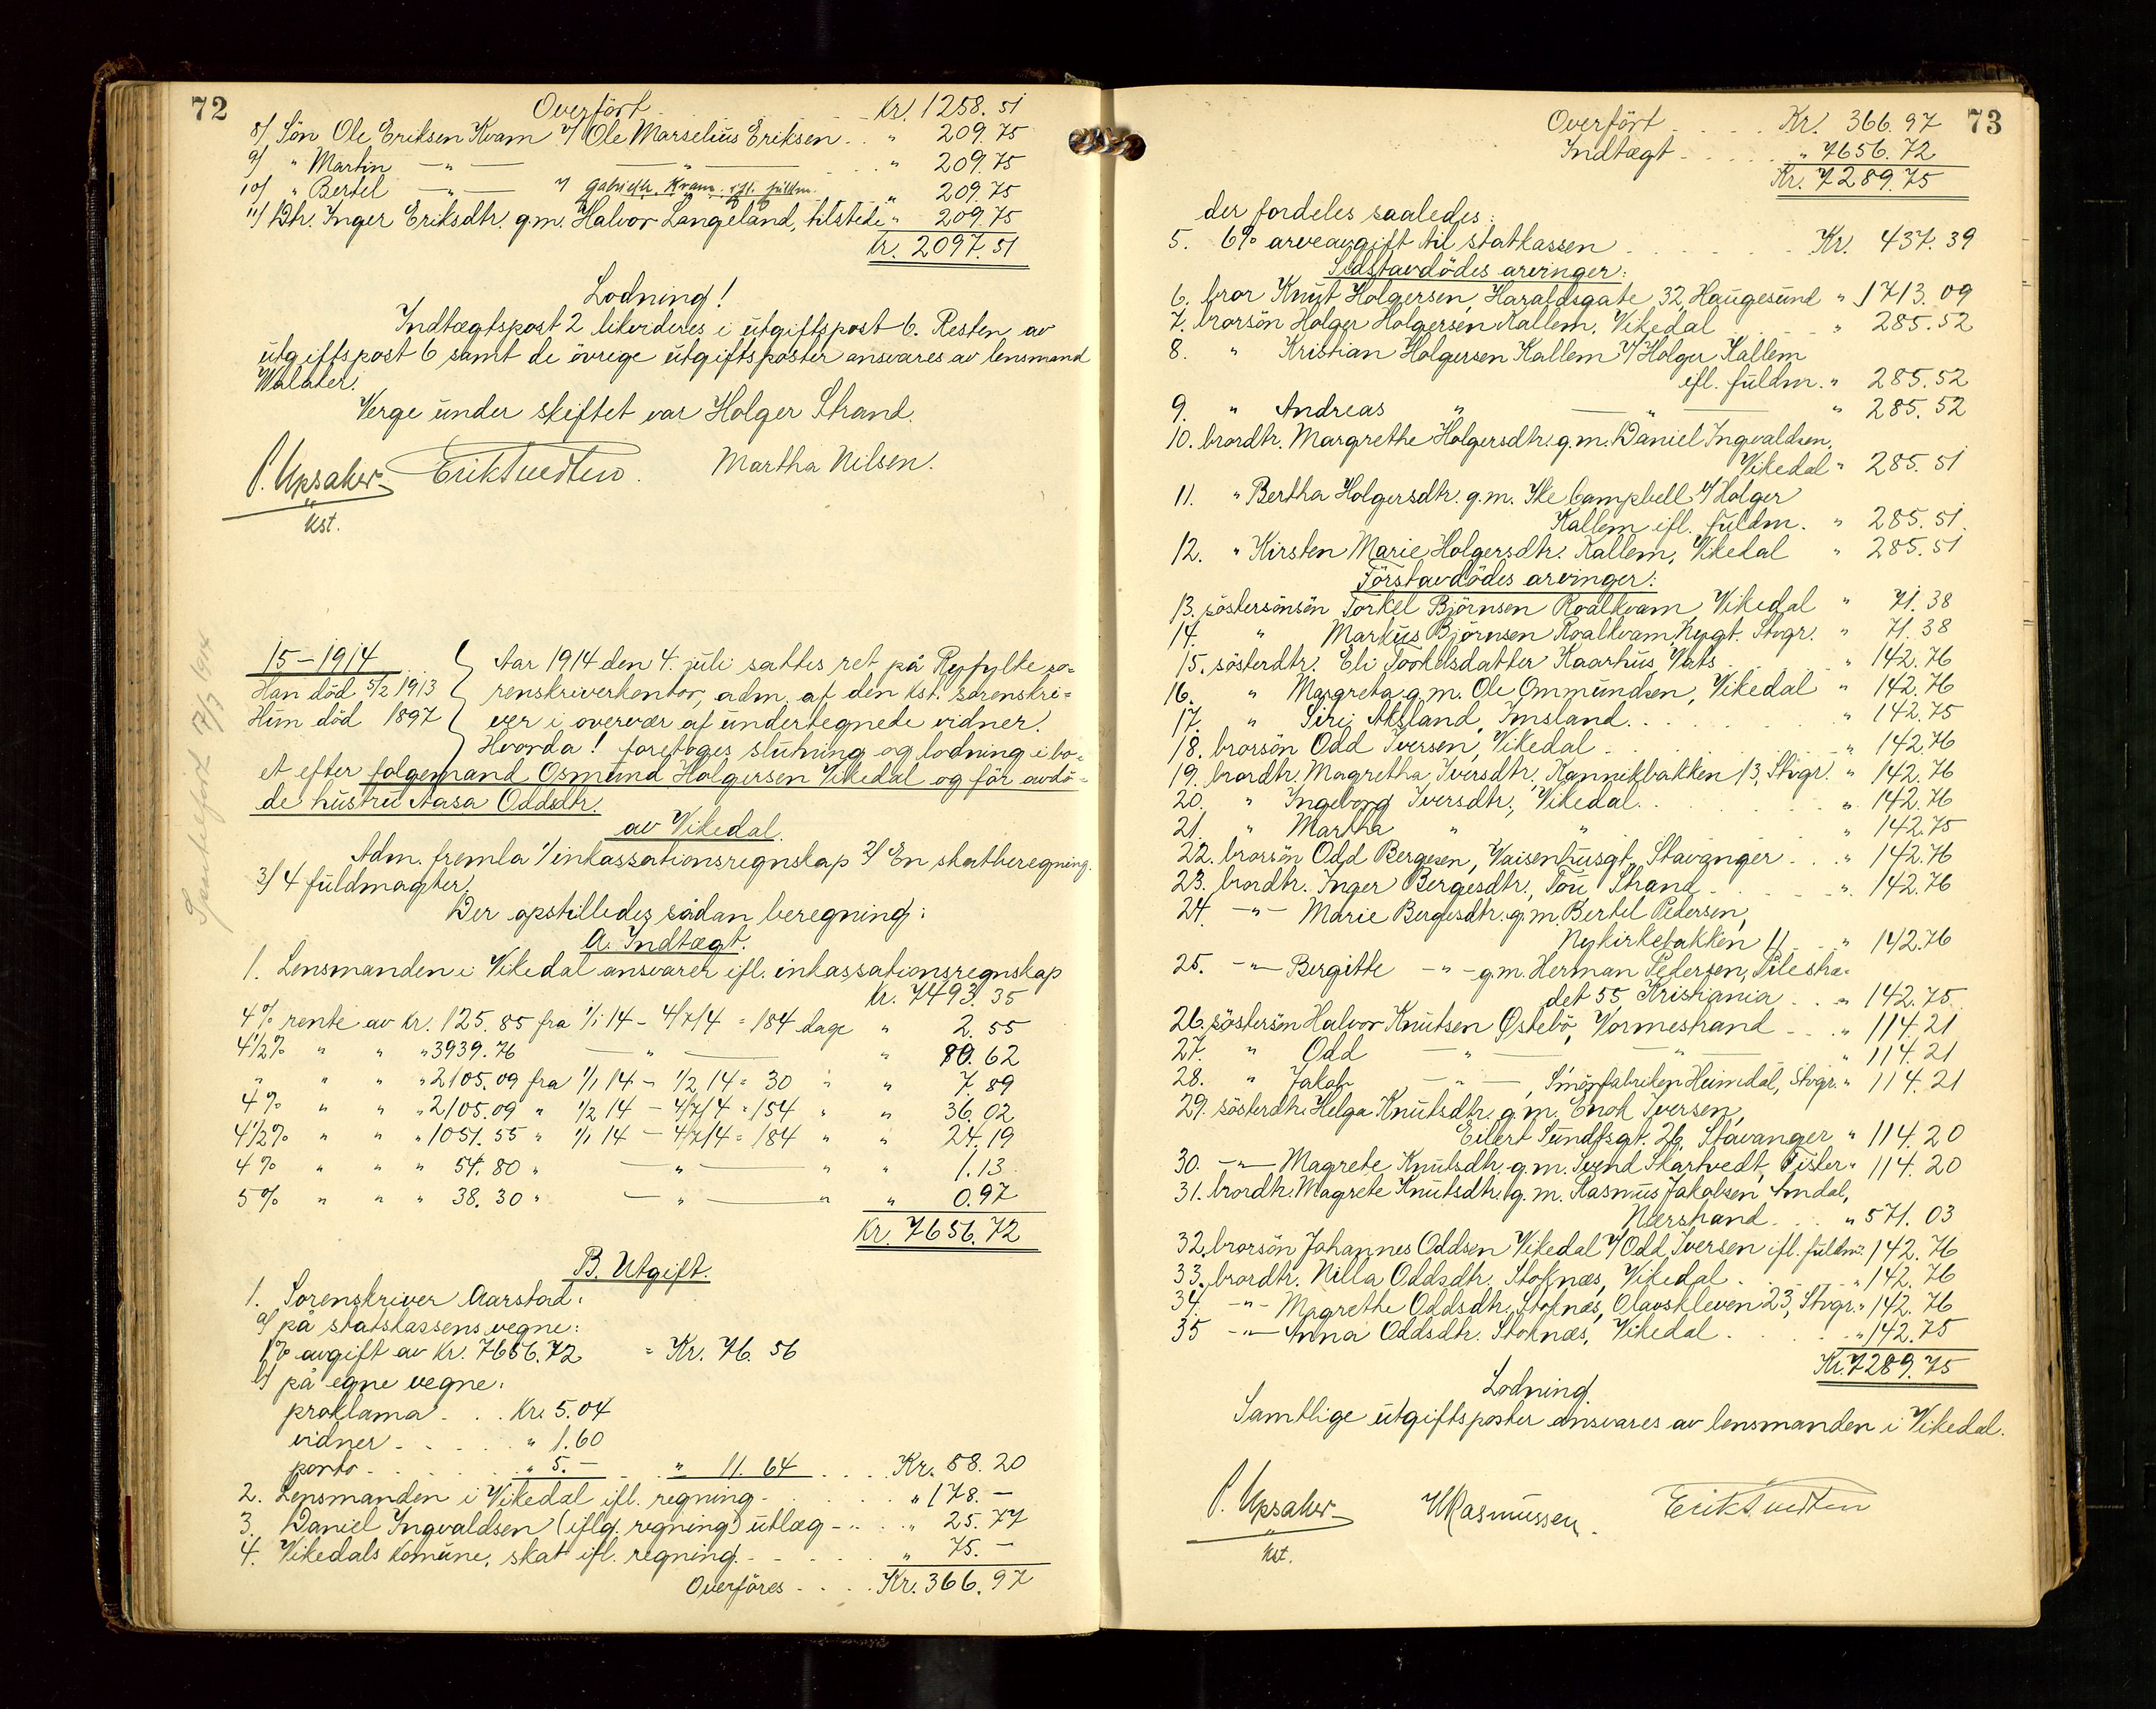 72
Overført . . . Kr. 1258.51
8/ Sön Ole Eriksen Kvam v/ Ole Marselius Eriksen . . " 209.75
9/ " Martin —"— —"— . . " 209.75
10/ " Bertel —"— v/ Gabriel E. Kvam ifl. fuldm. " 209.75
11/ Dtr. Inger Eriksdtr. g.m. Halvor Langeland, tilstede " 209.75
Kr. 2097.51
Lodning!
Indtægtspost 2 likvideres i utgiftspost 6. Resten av
utgiftspost 6 samt de övrege utgiftsposter ansvares av lensmand
Walater.
Verge under skiftet var Holger Strand.
P. Upsaker Erik Tuedten. Martha Nilsen.
kst.
15–1914
Han död 5/2 1913
Hun död 1897
Aar 1914 den 4. juli sattes ret på Ryfylke so-
renskriverkontor, adm. af den kst. sorenskri-
ver i overvær af undertegnede vidner.
Hvorda! foretoges slutning og lodning i bo-
et efter følgemand Osmund Holgersen Vikedal og för avdö-
de hustru Aasa Oddsdtr.
av Vikedal.
Adm. fremla 1/ inkassationsregnskap 2/ En skatberegning.
3/ 4 fuldmagter.
Der opstilledes sådan beregning:
A. Indtægt.
1. Lensmanden i Vikedal ansvarer ifl. inkassationsregnskap
Kr. 7493.35
4% rente av kr. 125.85 fra 1/1 14 – 4/7 14 = 184 dage " 2.55
4 1/2% " " " 3939.76 —"— " 80.62
" " " " 2105.09 fra 1/1 14 – 1/2 14 = 30 " " 7.89
4% " " " 2105.09 " 1/2 14 – 4/7 14 = 154 " " 36.02
4 1/2% " " " 1051.55 " 1/1 14 – 4/7 14 = 184 " " 24.19
4% " " " 54.80 " —"— " " 1.13
5% " " " 38.30 " —"— " " 0.97
Kr. 7656.72
B. Utgift.
1. Sorenskriver Aarstad:
a/ på statskassens vegne:
1% avgift av kr. 7656.72 = Kr. 76.56
b/ på egne vegne:
proklama . . . Kr. 5.04
vidner . . . . " 1.60
porto . . . . " 5.– " 11.64 . . . Kr. 88.20
2. Lensmanden i Vikedal ifl. regning . . . . " 178.–
3. Daniel Ingvaldsen (iflg. regning) utlæg . . . " 25.77
4. Vikedals komune, skat ifl. regning . . . . " 75.–
Overføres . . . . Kr. 366.97
73
Overført . . . . Kr. 366.97
Indtægt . . . . . " 7656.72
Kr. 7289.75
der fordeles saaledes:
5. 6% arveavgift til statkassen . . . . Kr. 437.39
Sidstavdödes arvinger:
6. bror Knut Holgersen, Haraldsgate 32, Haugesund " 1713.09
7. brorsön Holger Holgersen Kallem, Vikedal . . . " 285.52
8. " Kristian Holgersen Kallem v/ Holger Kallem
ifl. fuldm. " 285.52
9. " Andreas " —"— " 285.52
10. brordtr. Margrethe Holgersdtr. g.m. Daniel Ingvaldsen,
Vikedal " 285.51
11. " Bertha Holgersdtr. g.m. Ike Campbell v/ Holger
Kallem ifl. fuldm. " 285.51
12. " Kirsten Marie Holgersdtr. Kallem, Vikedal " 285.51
Förstavdödes arvinger:
13. söstersönsön Torkel Björnsen Roalkvam Vikedal " 71.38
14. " Markus Björnsen Roalkvam, Nygt. Stvgr. " 71.38
15. sösterdtr. Eli Torkelsdatter Kaarhus, Vats . . . " 142.76
16. " Margreta g.m. Ole Ommundsen, Vikedal " 142.76
17. " Siri Aksland, Imsland . . . . " 142.75
18. brorsön Odd Iversen, Vikedal . . . . " 142.76
19. brordtr. Magretha Iversdtr., Kannikbakken 13, Stvgr. " 142.76
20. " Ingeborg Iversdtr., Vikedal . . . " 142.76
21. " Martha " " " 142.75
22. brorsön Odd Bergesen, Vaisenhusgt., Stavanger . . . " 142.76
23. brordtr. Inger Bergesdtr., Tou Strand . . . " 142.76
24. —"— Marie Bergesdtr. g.m. Bertel Pedersen,
Nykirkebakken 11 . . . " 142.76
25. —"— Bergitte —"— g.m. Herman Pedersen, Pilestræ-
det 55, Kristiania . . . " 142.75
26. söstersön Halvor Knutsen Østebö, Vormestrand . . . " 114.21
27. " Odd —"— —"— " 114.21
28. " Jakob —"—, Smörfabriken Heimdal, Stvgr. " 114.21
29. sösterdtr. Helga Knutsdtr. g.m. Enok Iversen,
Eilert Sundtsgt. 26, Stavanger " 114.20
30. —"— Magrete Knutsdtr. g.m. Svend Skartvedt, Fister " 114.20
31. brordtr. Magrete Knutsdtr. g.m. Rasmus Jakobsen Amdal,
Nærstrand . . . " 571.03
32. brorsön Johannes Oddsen Vikedal v/ Odd Iversen ifl. fuldm. " 142.76
33. brordtr. Nilla Oddsdtr. Stoknæs, Vikedal . . . " 142.76
34. —"— Magrethe Oddsdtr. Stoknæs, Olavskleven 23, Stvgr. " 142.76
35 —"— Anna Oddsdtr. Stoknæs, Vikedal . . . . " 142.75
Kr. 7289.75
Lodning
Samtlige utgiftsposter ansvares av lensmanden i Vikedal.
P. Upsaker Rasmussen. Erik Tuedten
kst.